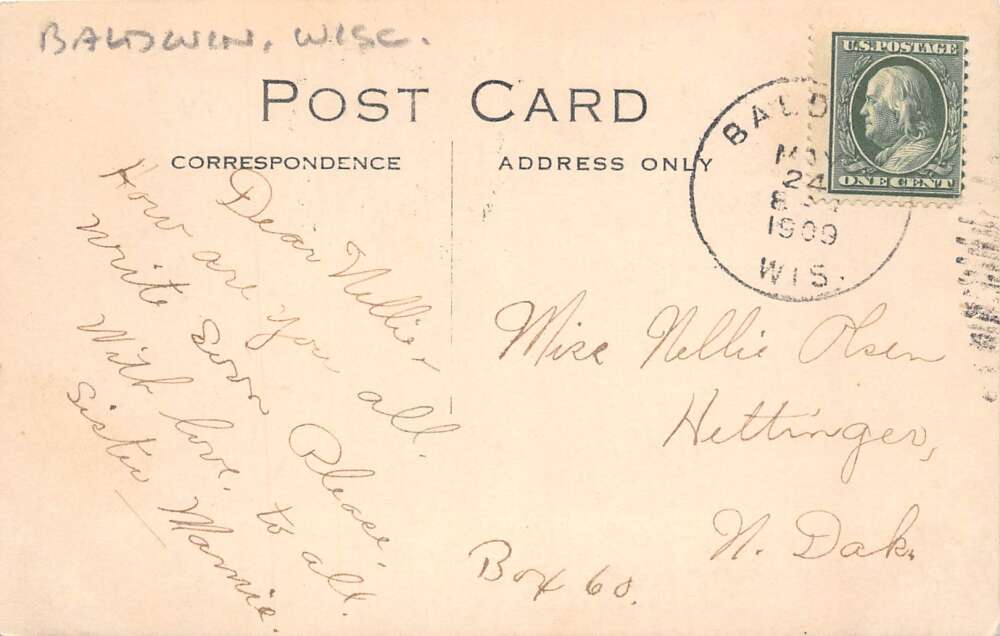 BALDWIN, WISC.
U.S. POSTAGE
ONE CENT
POST CARD
CORRESPONDENCE
ADDRESS ONLY
BALD
MAY
24
8
1909
WIS.
Dear Nellie -
How are you all.
Write soon Please.
With love. to all.
Sister Mamie.
Miss Nellie Olsen
Hettinger,
N. Dak.
Box 60.